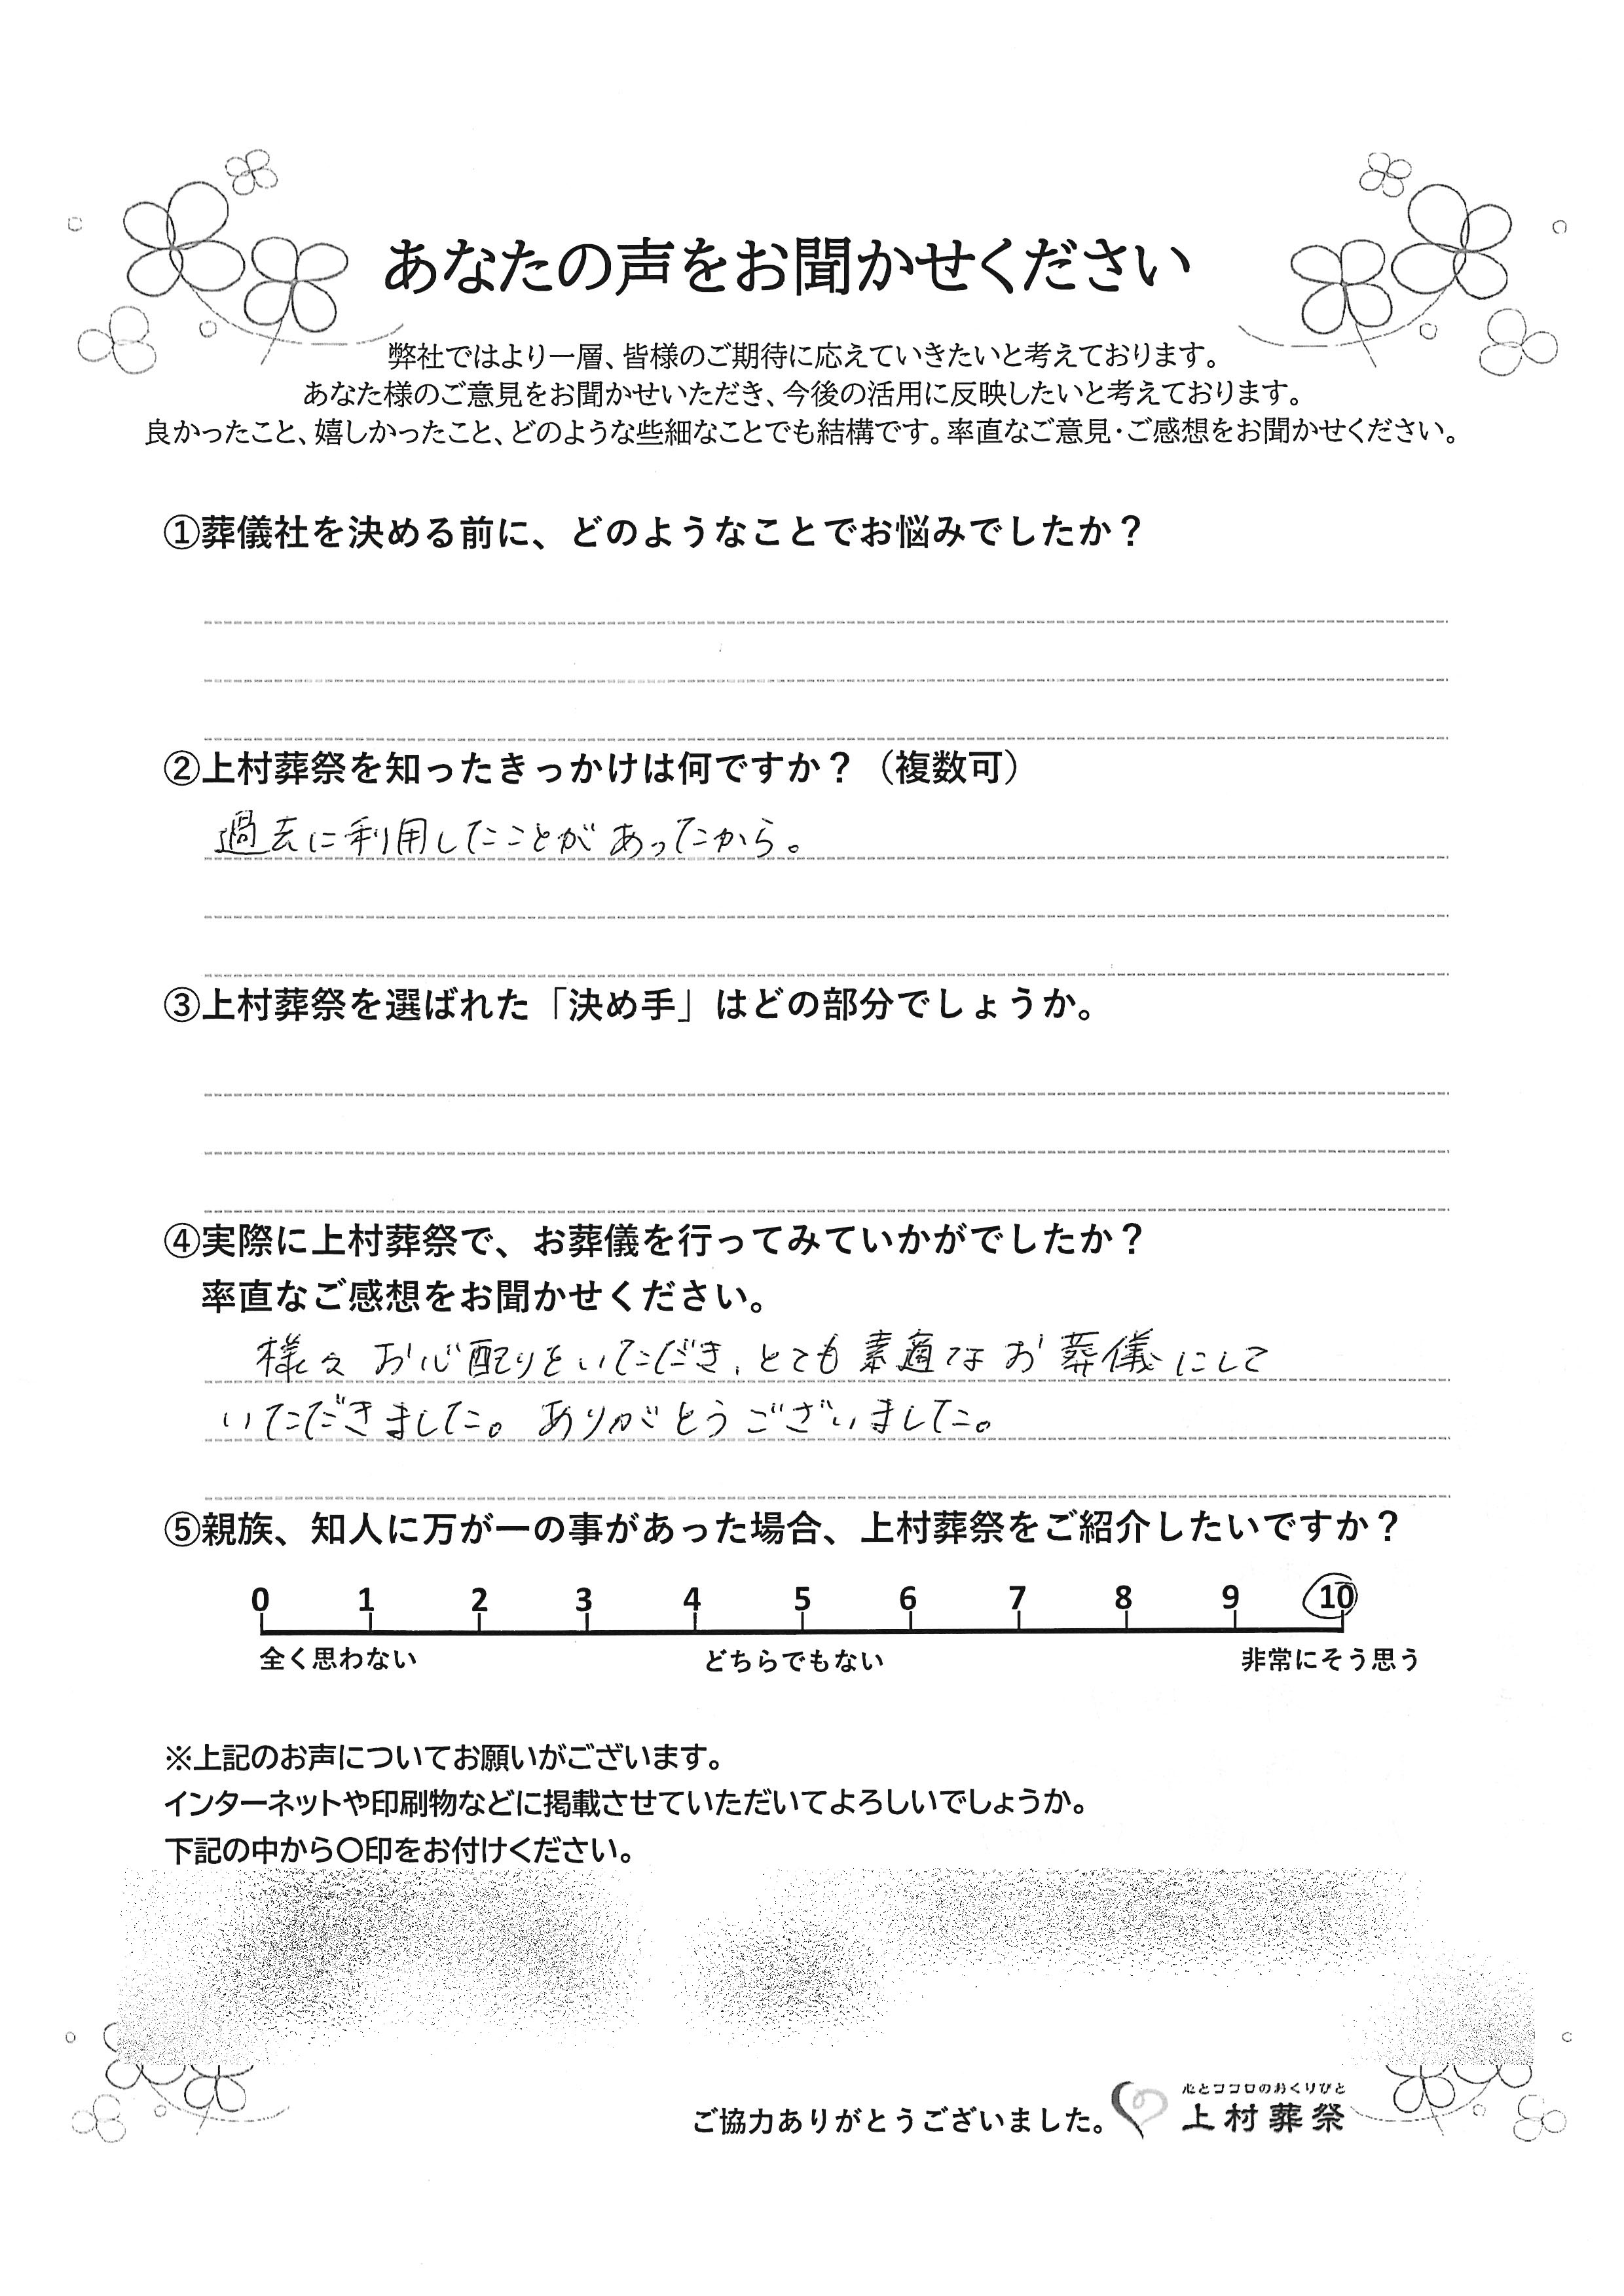 あなたの声をお聞かせください
弊社ではより一層、皆様のご期待に応えていきたいと考えております。
あなた様のご意見をお聞かせいただき、今後の活用に反映したいと考えております。
良かったこと、嬉しかったこと、どのような些細なことでも結構です。率直なご意見・ご感想をお聞かせください。
①葬儀社を決める前に、どのようなことでお悩みでしたか？
②上村葬祭を知ったきっかけは何ですか？（複数可）
過去に利用したことがあったから。
③上村葬祭を選ばれた「決め手」はどの部分でしょうか。
④実際に上村葬祭で、お葬儀を行ってみていかがでしたか？
率直なご感想をお聞かせください。
様々お心配りをいただき、とても素適なお葬儀にして
いただきました。ありがとうございました。
⑤親族、知人に万が一の事があった場合、上村葬祭をご紹介したいですか？
0 1 2 3 4 5 6 7 8 9 10
全く思わない どちらでもない 非常にそう思う
※上記のお声についてお願いがございます。
インターネットや印刷物などに掲載させていただいてよろしいでしょうか。
下記の中から〇印をお付けください。
心とココロのおくりびと
ご協力ありがとうございました。 上村葬祭